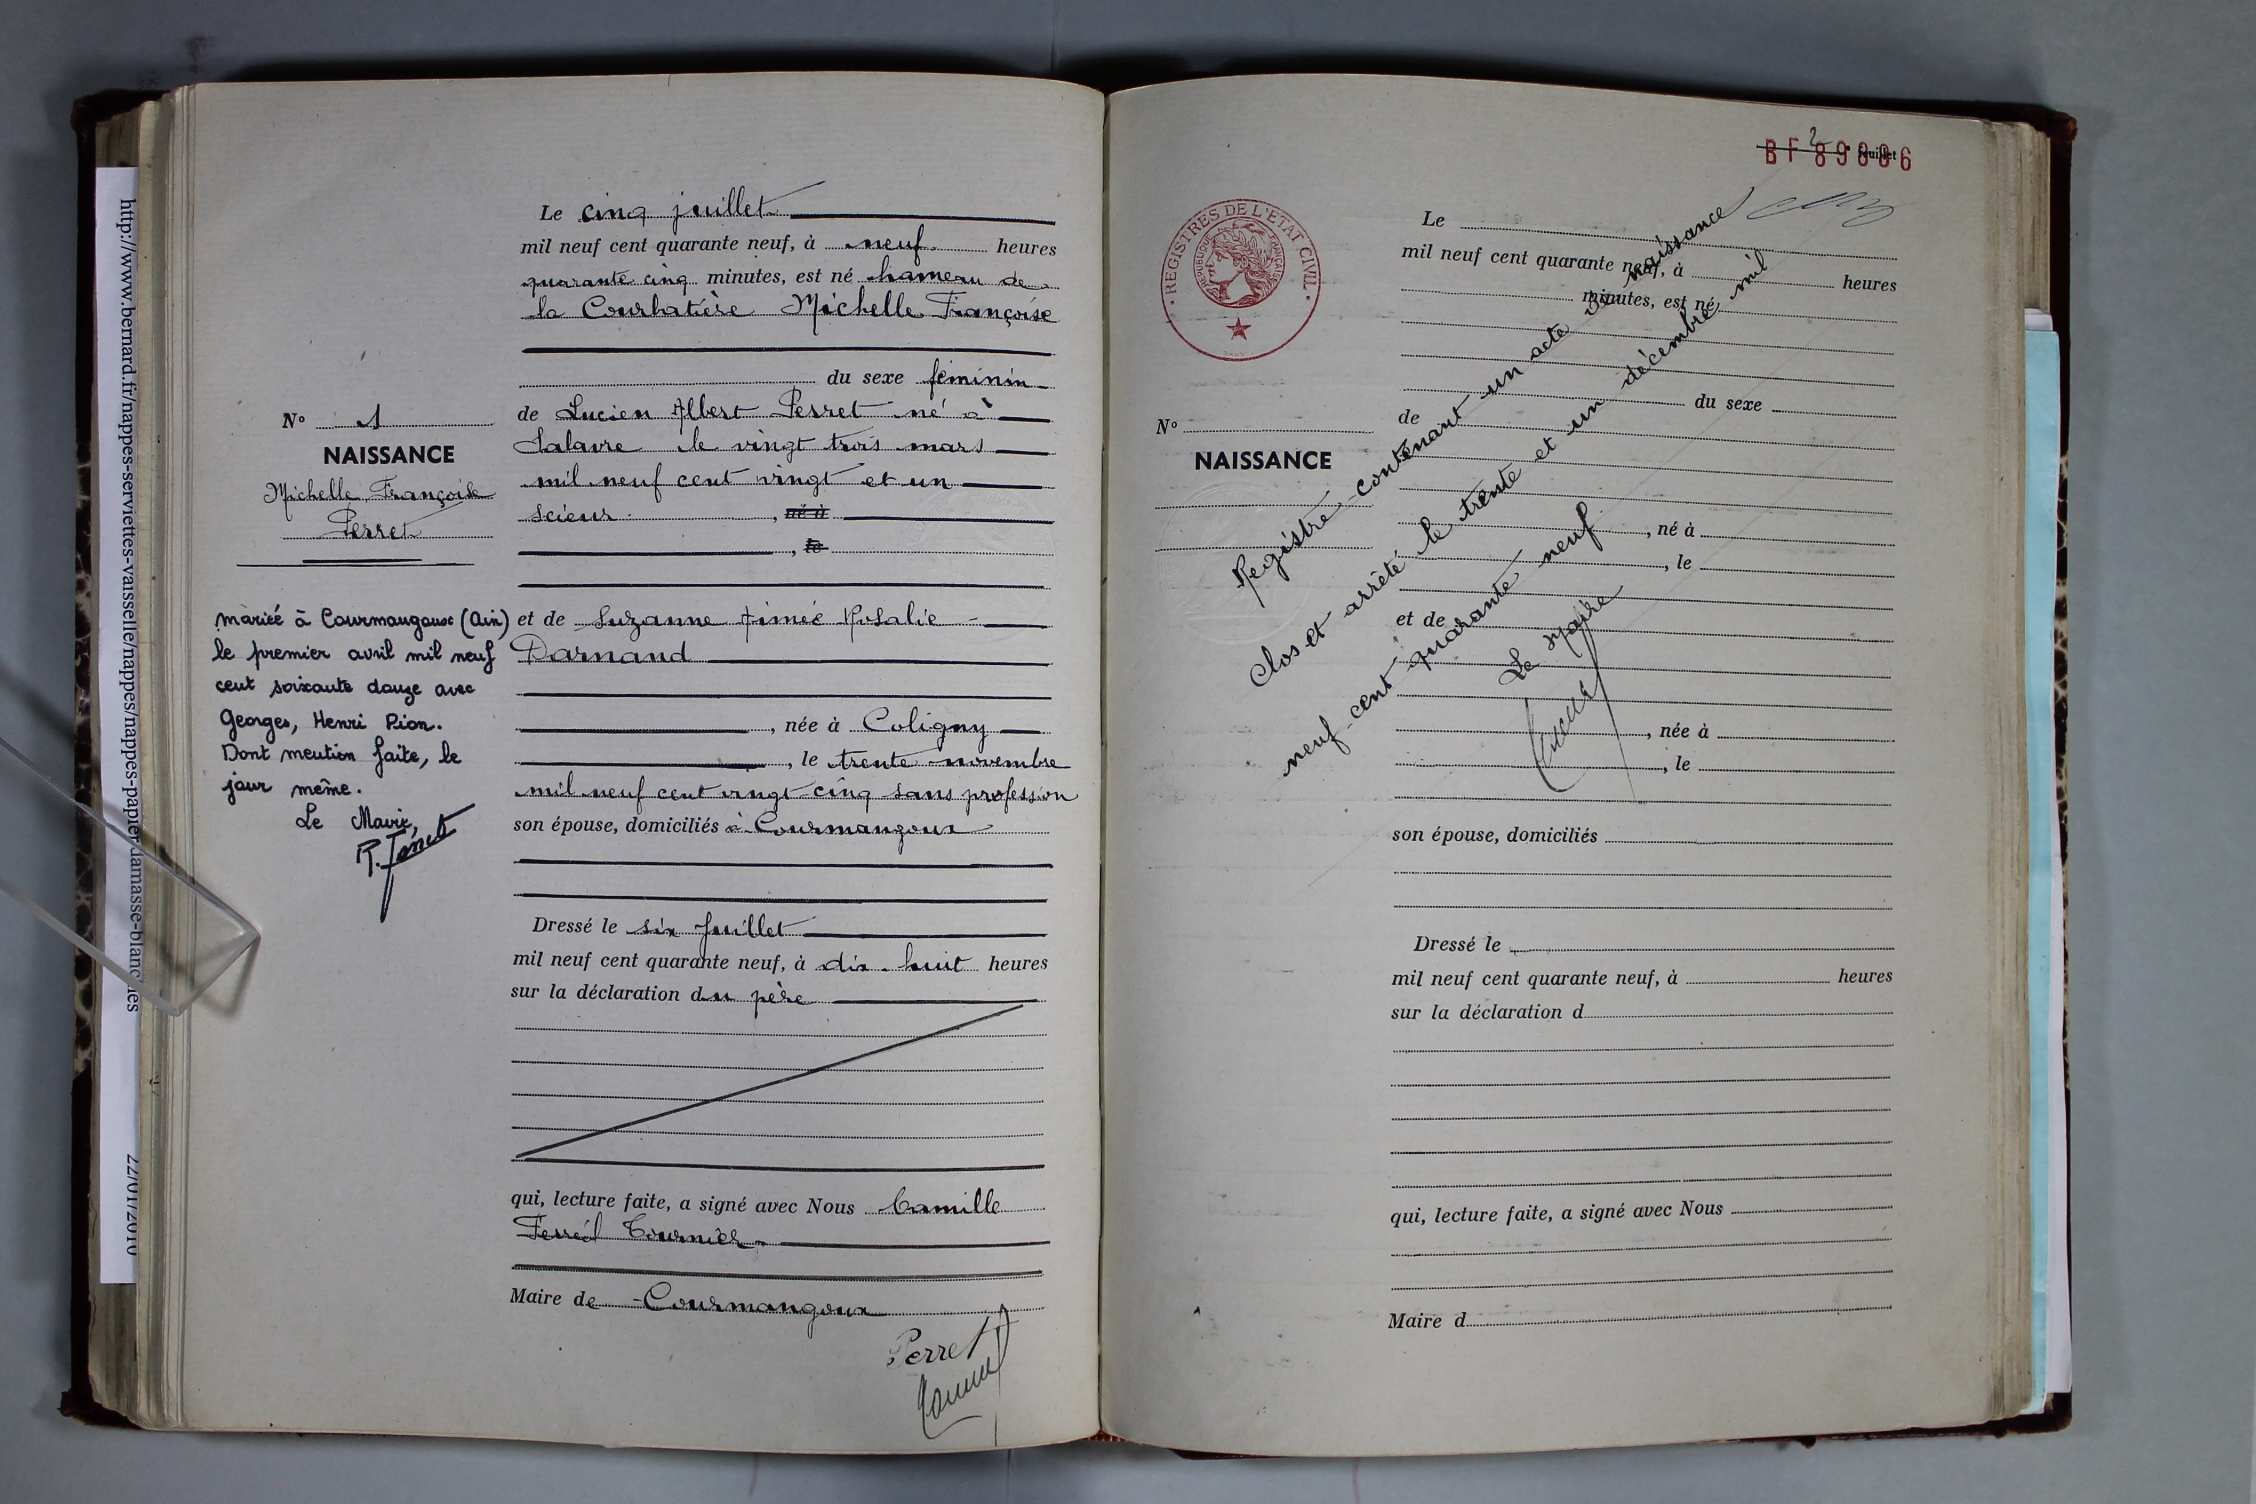 http://www.bernard.fr/nappes-serviettes-vaisselle/nappes/nappes-papier-damasse-blanc
22/01/2010
Le cinq juillet
mil neuf cent quarante neuf, à neuf heures
quarante cinq minutes, est né hameau de
la Courbatière Michelle Françoise
du sexe féminin
N° 1
NAISSANCE
Michelle Françoise
Perret
de Lucien Albert Perret né à
Salavre le vingt trois mars
mil neuf cent vingt et un
scieur, né à
, le
mariée à Courmangoux (Ain)
le premier avril mil neuf
cent soixante douze avec
Georges, Henri Pion.
Dont mention faite, le
jour même.
Le Maire,
et de Suzanne Aimée Rosalie
Darnand
, née à Coligny
, le trente novembre
mil neuf cent vingt cinq sans profession
son épouse, domiciliés à Courmangoux
Dressé le six juillet
mil neuf cent quarante neuf, à dix huit heures
sur la déclaration du père
qui, lecture faite, a signé avec Nous Camille
Tournier
Maire de Courmangoux
Perret
2 feuillet
BF 89886
REGISTRES DE L'ETAT CIVIL
REPUBLIQUE FRANÇAISE
Le
mil neuf cent quarante neuf, à heures
minutes, est né
du sexe
N°
NAISSANCE
de
, né à
, le
et de
, née à
, le
son épouse, domiciliés
Dressé le
mil neuf cent quarante neuf, à heures
sur la déclaration d
qui, lecture faite, a signé avec Nous
Maire d
Registre contenant un acte de naissance
Clos et arrêté le trente et un décembre mil
neuf cent quarante neuf
Le Maire